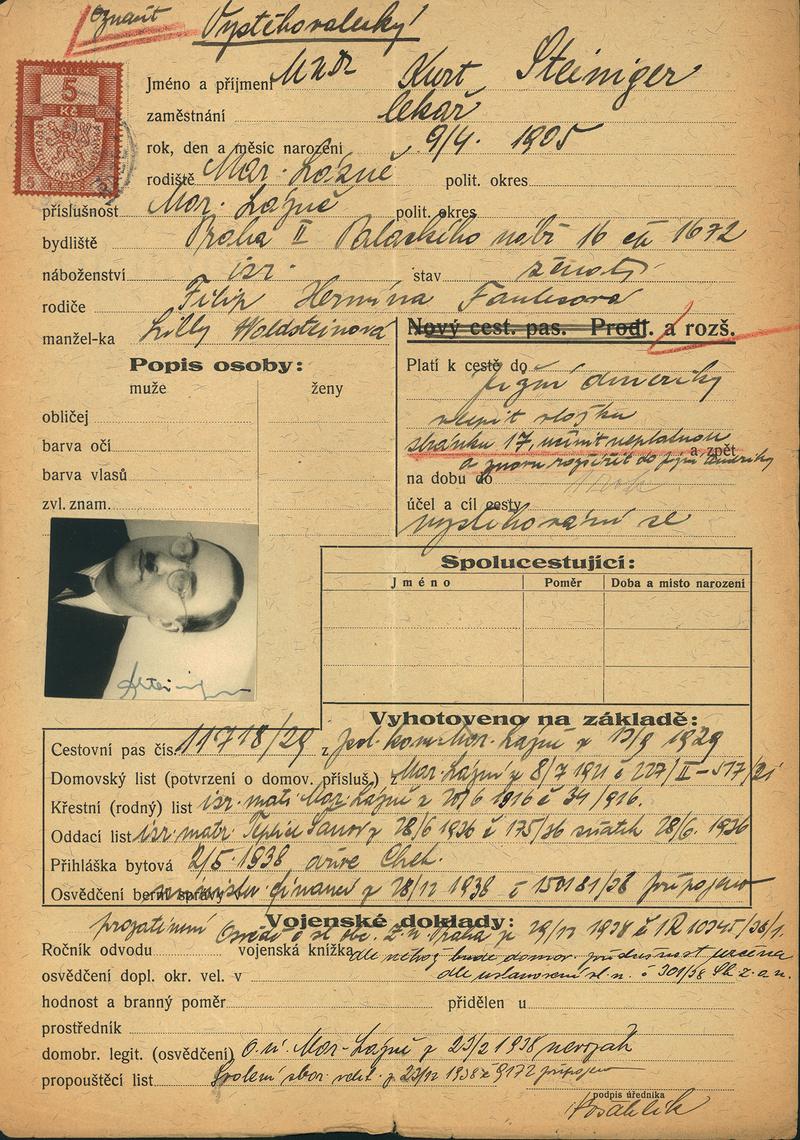 Vystěhovalecký!
KOLEK
5
Kč
Jméno a příjmení MUDr Kurt Steiniger
zaměstnání lékař
rok, den a měsíc narození 9/4. 1905
rodiště Mar. Lázně polit. okres
příslušnost Mar. Lázně polit. okres
bydliště Praha II Palackého nábř 16 čp 1672
náboženství isr. stav ženatý
rodiče Filip Hermína
manžel-ka Lilly Waldsteinová
Nový cest. pas. Prodl. a rozš.
Popis osoby:
muže ženy
obličej
barva očí
barva vlasů
zvl. znam.
Platí k cestě do Jižní Ameriky
vlepit vložku
stránku 17, učinit neplatnou
a zpět
a znovu rozšířit do Jižní Ameriky
na dobu do
účel a cíl cesty
vystěhování se
Spolucestující:
Jméno Poměr Doba a místo narození
Vyhotoveno na základě:
Cestovní pas čís. 11718/29 z pol. kom. Mar. Lázně z 13/9 1929
Domovský list (potvrzení o domov. přísluš.) z Mar. Lázně z 8/7 1921 č 227/II-517/21
Křestní (rodný) list isr. mat. Mar. Lázně z 20/6 1916 č 34/916.
Oddací list isr. matr. Teplice Šanov z 28/6 1936 č 175/36 sňatek 28/6. 1936
Přihláška bytová 2/5. 1938 dříve Cheb.
Osvědčení berní správy minister. financí z 28/12 1938 č 150181/38 připojeno
Vojenské doklady:
Osvěd. o st. obč. Z. ú. Praha z 29/12 1938 č 1R 10345/38/1.
Ročník odvodu vojenská knížka
dle něhož bude domov. příslušnost určena
osvědčení dopl. okr. vel. v
dle ustanovení vl. n. č 301/38 Sb. z. a n.
hodnost a branný poměr přidělen u
prostředník
domobr. legit. (osvědčení) O. ú. Mar. Lázně z 23/2 1938 nevoják
propouštěcí list z 23/12 1938 č 9172 připojeno
podpis úředníka